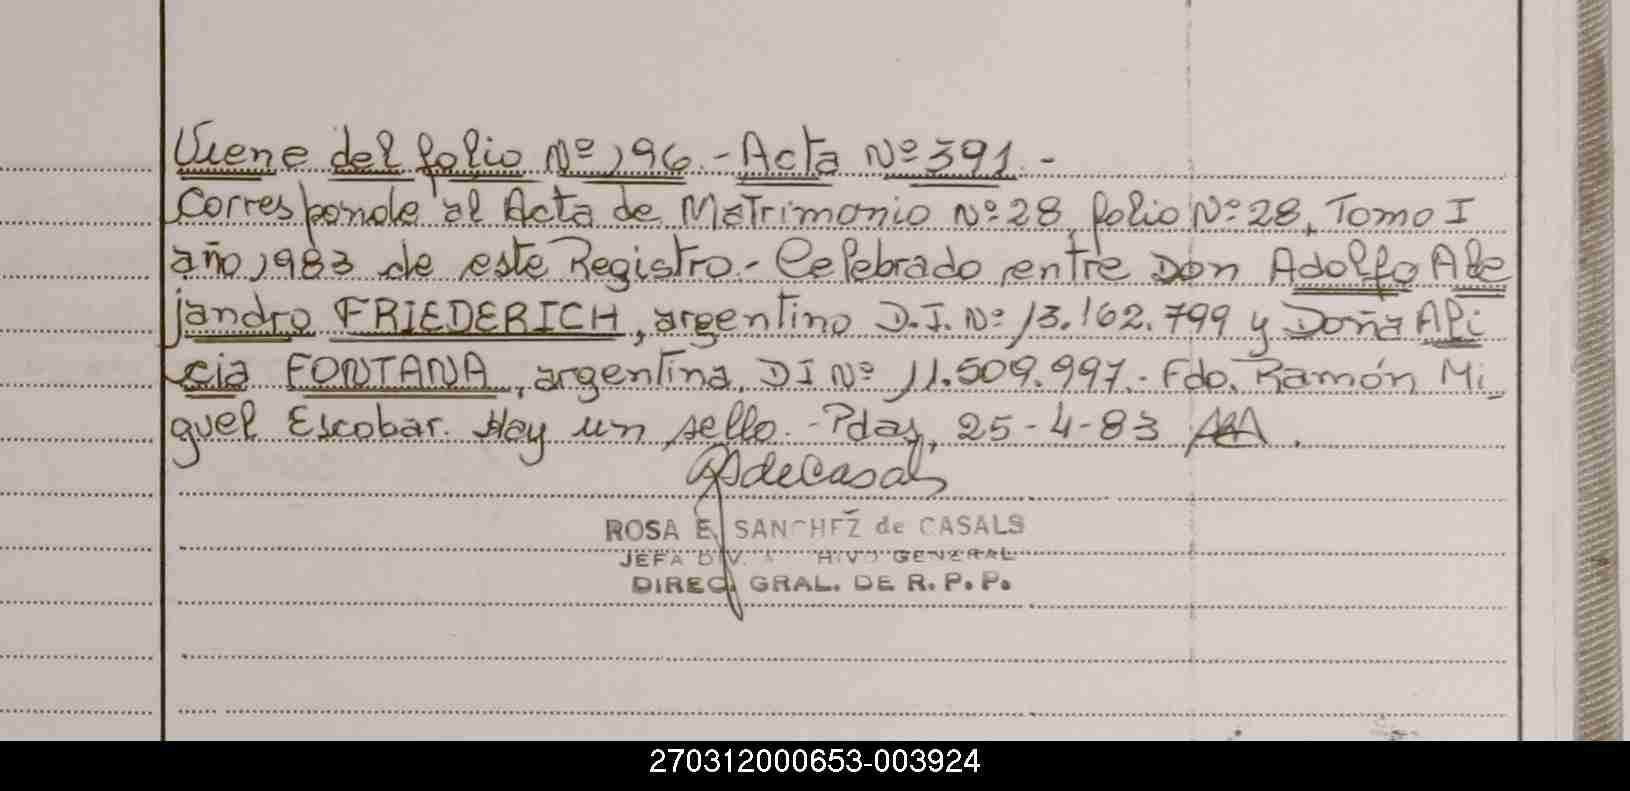 Viene del folio Nº 196.- Acta Nº 391.-
Corresponde al Acta de Matrimonio Nº 28, folio Nº 28, Tomo I
año 1983 de este Registro.- Celebrado entre Don Adolfo Ale
jandro FRIEDERICH, argentino D.I. Nº 13.162.799 y Doña Ali
cia FONTANA, argentina, DI Nº 11.509.997.- Fdo. Ramón Mi
guel Escobar. Hay un sello.- Pdas, 25-4-83
RSdeCasals
ROSA E. SANCHEZ de CASALS
JEFA DIV. ARCHIVO GENERAL
DIREC. GRAL. DE R. P. P.
270312000653-003924